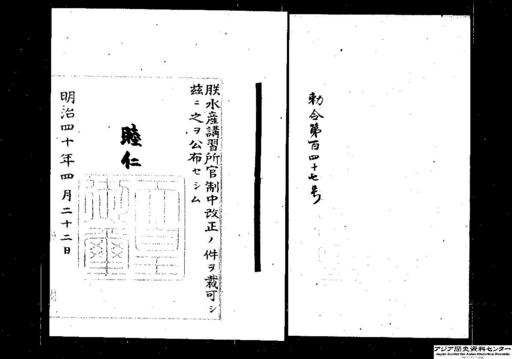 勅令第百四十七号
朕水産講習所官制中改正ノ件ヲ裁可シ
茲ニ之ヲ公布セシム
睦仁
天皇御璽
明治四十年四月二十二日
アジア歴史資料センター
Japan Center for Asian Historical Records